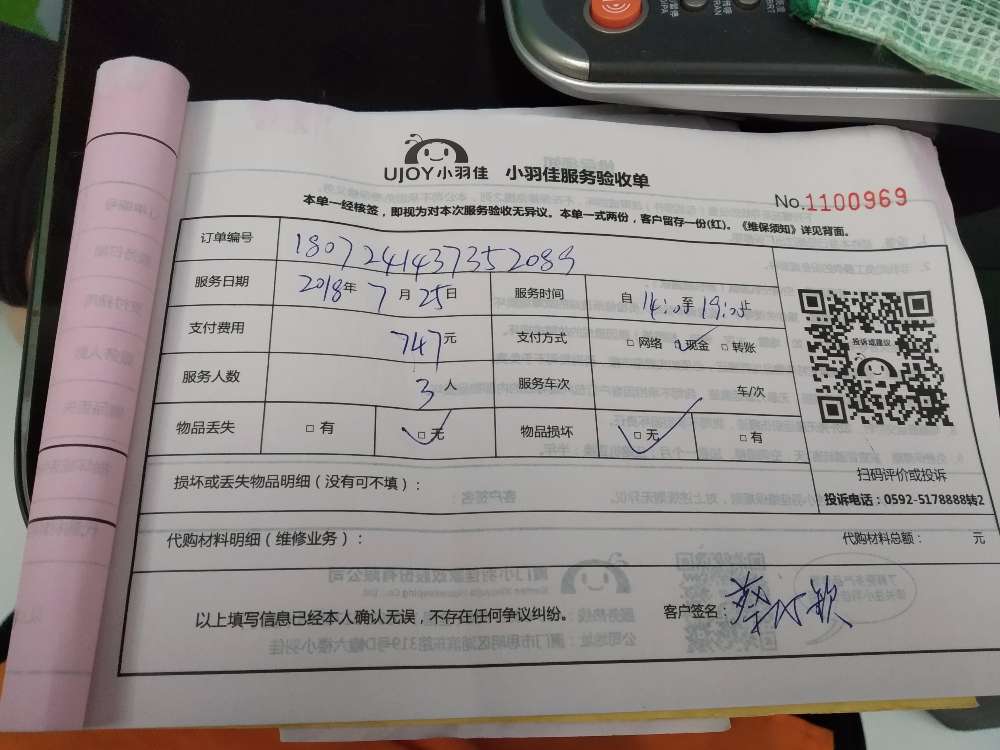 UJOY小羽佳 小羽佳服务验收单
No.1100969
本单一经核签，即视为对本次服务验收无异议。本单一式两份，客户留存一份(红)。《维保须知》详见背面。
订单编号 180724143735 2089
服务日期 2018年 7 月 25 日 服务时间 自 14:00 至 19:00 止
支付费用 747 元 支付方式 □ 网络 ☑ 现金 □ 转账
服务人数 3 人 服务车次 车/次
物品丢失 □ 有 ☑ 无 物品损坏 ☑ 无 □ 有
投诉或建议
扫码评价或投诉
投诉电话：0592-5178888转2
损坏或丢失物品明细（没有可不填）：
代购材料明细（维修业务）： 代购材料总额： 元
以上填写信息已经本人确认无误，不存在任何争议纠纷。 客户签名：